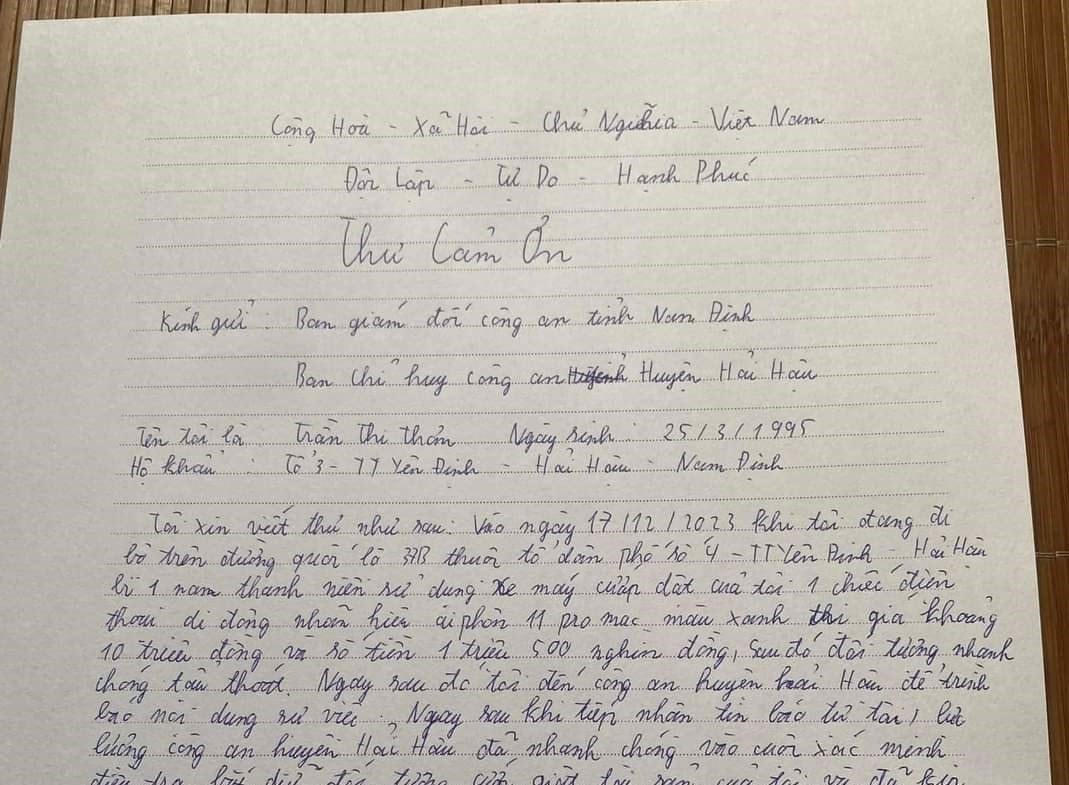 Cộng Hoà - Xã Hội - Chủ Nghĩa - Việt Nam
Độc Lập - Tự Do - Hạnh Phúc
Thư Cảm Ơn
Kính gửi : Ban giám đốc công an tỉnh Nam Định
Ban chỉ huy công an Huyện Hải Hậu
Tên tôi là : Trần Thị Thơm Ngày sinh : 25/3/1995
Hộ khẩu : Tổ 3 - TT Yên Định - Hải Hậu - Nam Định
Tôi xin viết thư như sau: Vào ngày 17/12/2023 khi tôi đang đi
bộ trên đường quốc lộ 37B thuộc tổ dân phố số 4 - TT Yên Định - Hải Hậu
bị 1 nam thanh niên sử dụng xe máy cướp dật của tôi 1 chiếc điện
thoại di động nhãn hiệu ai phôn 11 pro mac màu xanh trị giá khoảng
10 triệu đồng và số tiền 1 triệu 500 nghìn đồng, sau đó đối tượng nhanh
chóng tẩu thoát. Ngay sau đó tôi đến công an huyện Hải Hậu để trình
báo nội dung sự việc. Ngay sau khi tiếp nhận tin báo từ tôi, lực
lượng công an huyện Hải Hậu đã nhanh chóng vào cuộc xác minh
điều tra bắt đối tượng cướp giật tài sản của tôi và đã